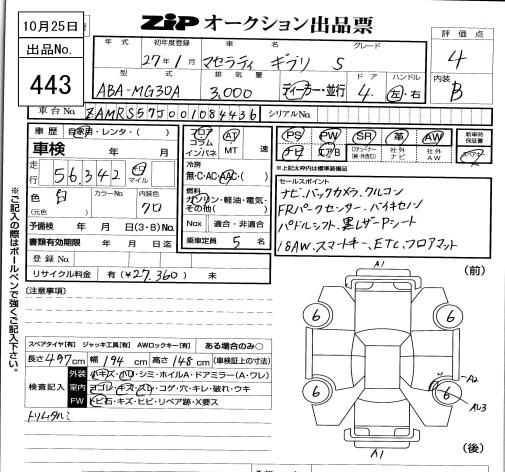 10月25日
出品No.
443
ZIP オークション出品票
評価点
4
内装
B
年式 初年度登録 車名 グレード
27年1月 マセラティ ギブリ S
型式 排気量 ドア ハンドル
ABA-MG30A 3,000 ディーラー・並行 4 左・右
車台No. ZAMRS57J001084436 シリアルNo.
車歴 自家用・レンタ・( )
車検 年 月
走行 56,342 km マイル
色 白 (元色) カラーNo. 内装色 クロ
予備検 年 月 日(3・8)No.
書類有効期限 年 月 日迄
登録No.
リサイクル料金 有(¥27,360) 未
フロア コラム インパネ AT MT 速
冷房
無・C・AC・AAC・( )
燃料
ガソリン・軽油・電気・その他( )
Nox 適合・非適合
乗車定員 5 名
PS PW SR 革 AW
ナビ エアB 社外ナビ 社外AW
新車時保証書
※上記太枠内は標準装備品
セールスポイント
ナビ、バックカメラ、クルコン
FRパークセンサー、バイキセノン
パドルシフト、黒レザーPシート
18AW、スマートキー、ETC、フロアマット
※ご記入の際はボールペンで強くご記入下さい。
[注意事項]
スペアタイヤ[有] ジャッキ工具[有] AWロックキー[有] ある場合のみ○
長さ 497cm 幅 194cm 高さ 148cm (車検証上の寸法)
検査記入
外装 小キズ・凹・シミ・ホイルA・ドアミラー(A・ワレ)
室内 ヨゴレ・キズ・スレ・コゲ・穴・キレ・破れ・ウキ
FW トビ石・キズ・ヒビ・リペア跡・X要ス
トリムタルミ
A1
(前)
6
6
6
6
A2
AU3
A1
(後)